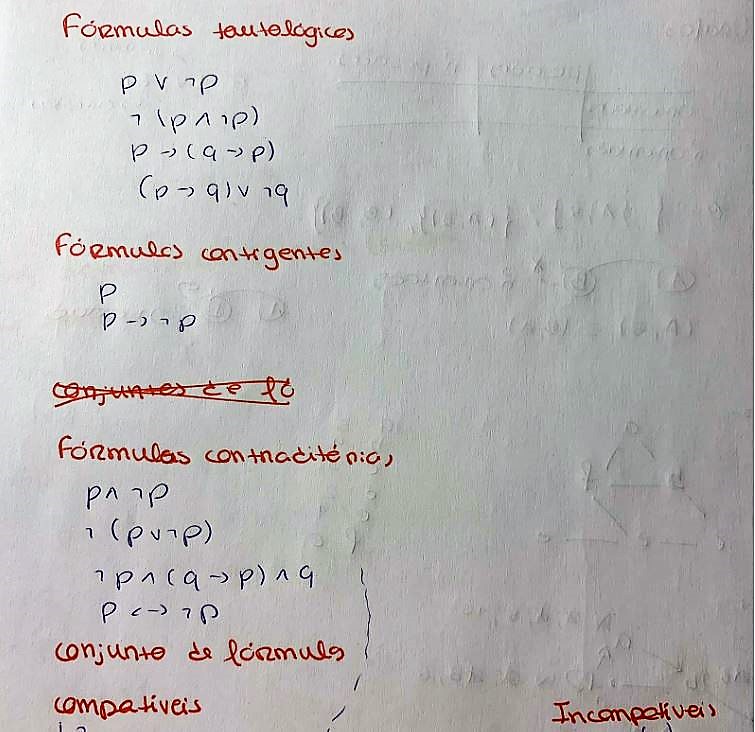 Fórmulas tautológicas
p ∨ ¬p
¬(p ∧ ¬p)
p → (q → p)
(p → q) ∨ ¬q
Fórmulas contigentes
p
p → ¬p
conjuntos de fó
Fórmulas contraditórias
p ∧ ¬p
¬(p ∨ ¬p)
¬p ∧ (q → p) ∧ q
p <-> ¬p
conjunto de fórmula
compatíveis
Incompatíveis